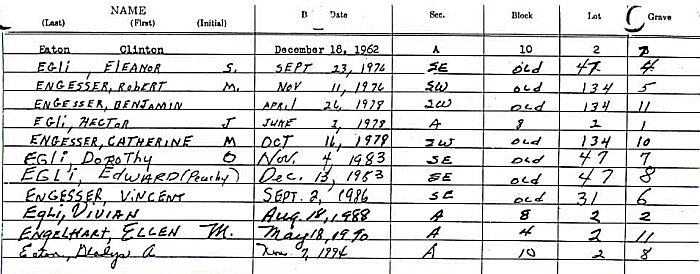 NAME B Date Sec. Block Lot Grave
(Last) (First) (Initial)
Eaton Clinton December 18, 1962 A 10 2
EGLI, ELEANOR S. SEPT 23, 1976 SE OLD 47 4
ENGESSER, ROBERT M. NOV 11, 1976 SW OLD 134 5
ENGESSER, BENJAMIN APRIL 26, 1978 SW OLD 134 11
EGLI, HECTOR J JUNE 2, 1978 A 8 2 1
ENGESSER, CATHERINE M OCT 16, 1979 SW OLD 134 10
EGLI, DOROTHY O NOV. 4, 1983 SE OLD 47 7
EGLI, EDWARD (Peachy) Dec. 13, 1983 SE OLD 47 8
ENGESSER, VINCENT SEPT. 2, 1986 SE OLD 31 6
EGLI, VIVIAN Aug. 18, 1988 A 8 2 2
ENGELHART, ELLEN M. May 18, 1990 A 4 2 11
Eaton, Gladys A Nov. 7, 1994 A 10 2 8